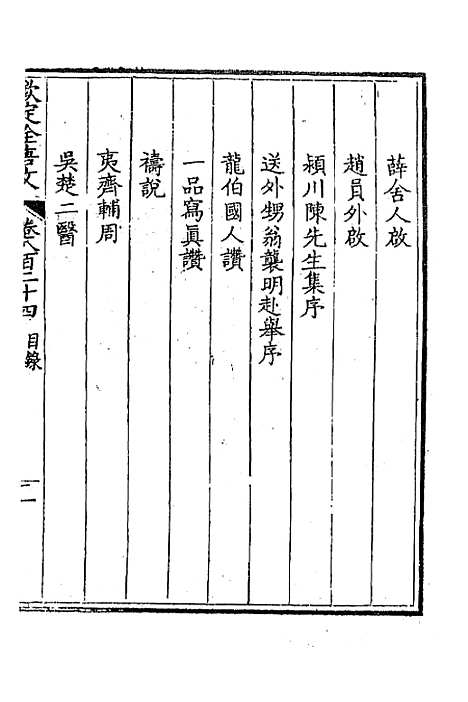 薛舍人啟
趙員外啟
潁川陳先生集序
送外甥翁襲明赴舉序
龍伯國人讚
一品寫眞讚
禱說
夷齊輔周
吳楚二醫
欽定全唐文 卷八百二十四 目錄 二